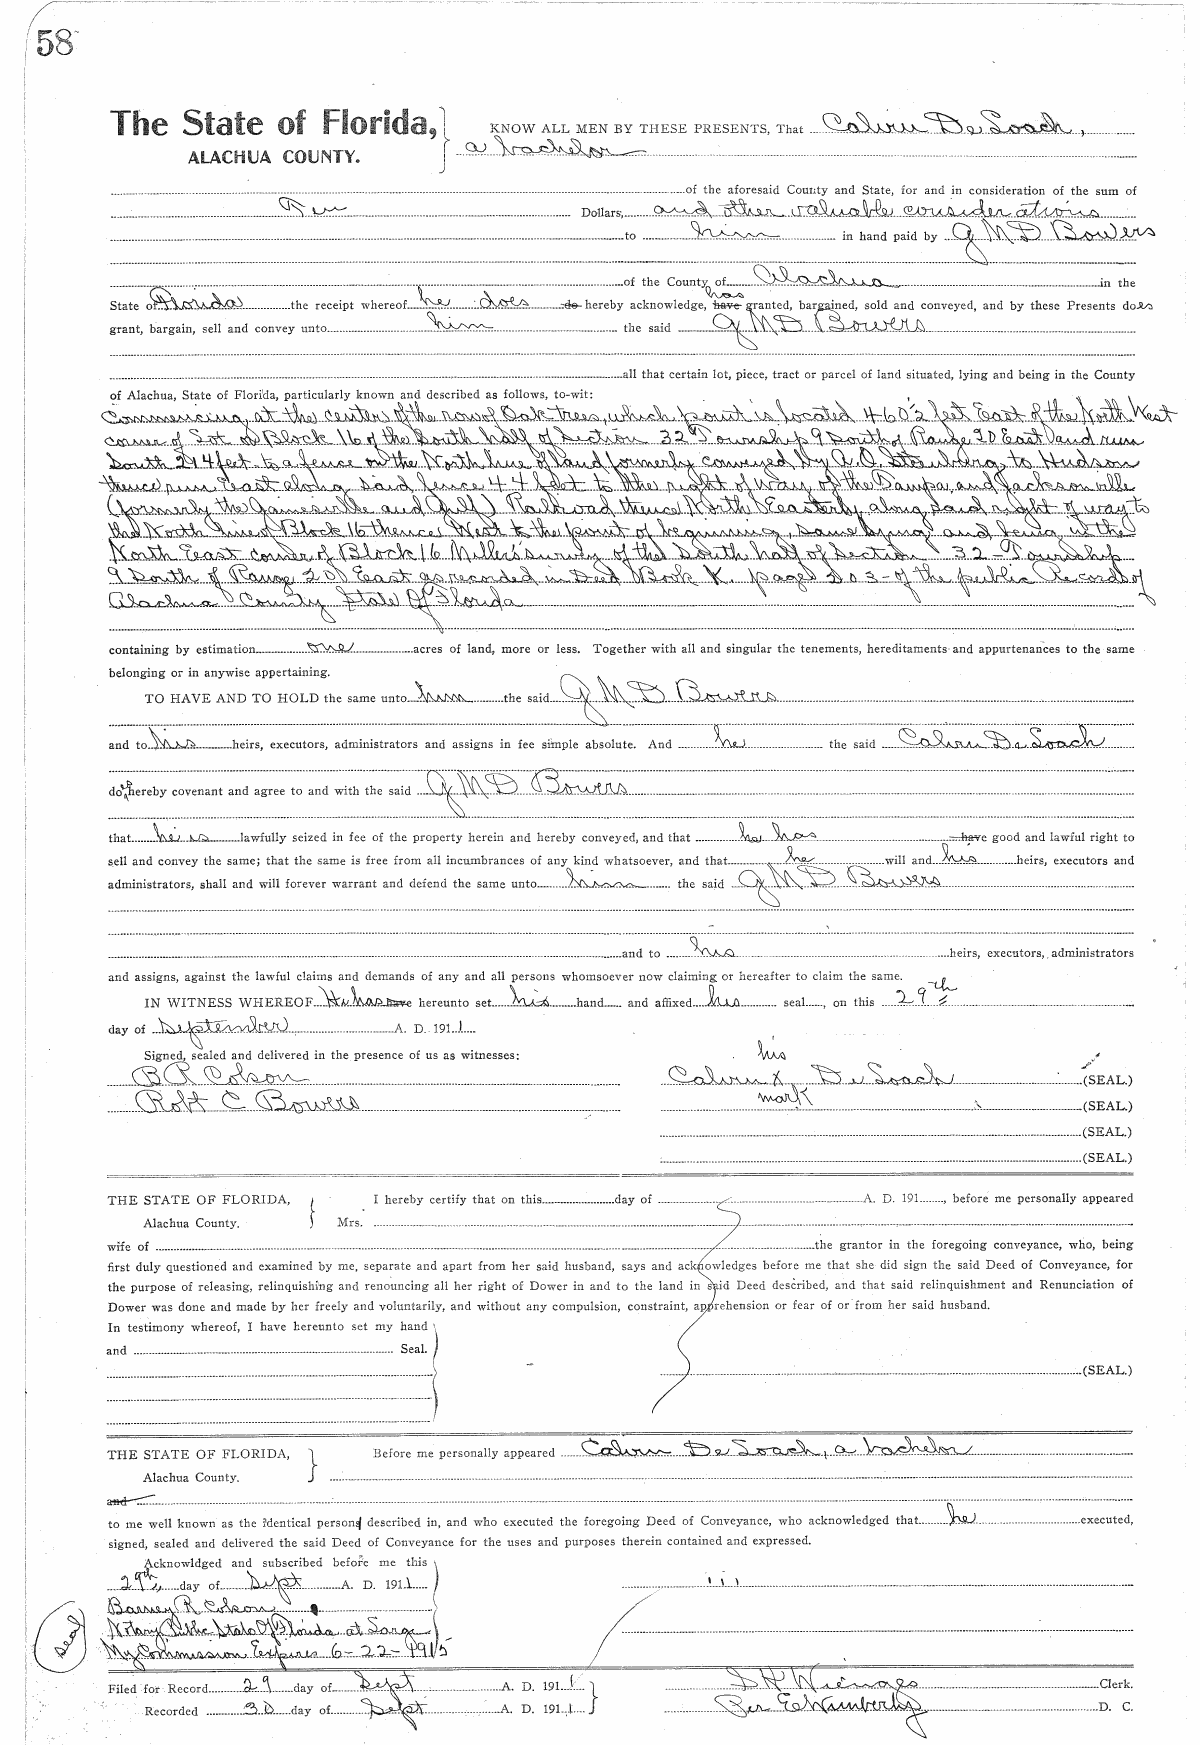 58
The State of Florida, KNOW ALL MEN BY THESE PRESENTS, That Calvin De Loach,
ALACHUA COUNTY. a bachelor
of the aforesaid County and State, for and in consideration of the sum of
Ten Dollars, and other valuable considerations
to him in hand paid by G M D Bowers
of the County of Alachua in the
State of Florida the receipt whereof he does do hereby acknowledge, have has granted, bargained, sold and conveyed, and by these Presents does
grant, bargain, sell and convey unto him the said G M D Bowers
all that certain lot, piece, tract or parcel of land situated, lying and being in the County
of Alachua, State of Florida, particularly known and described as follows, to-wit:
Commencing at the center of the row of Oak trees, which point is located 460 2 feet East of the North West
corner of Lot Block 16 of the South half of Section 32 Township 9 South of Range 20 East and run
South 214 feet to a fence on the North line of land formerly conveyed by A. O. Steenburg to Hudson
thence run East along said fence 44 feet to the right of way of the Tampa and Jacksonville
(formerly the Gainesville and Gulf) Railroad thence North Easterly along said right of way to
the North line of Block 16 thence West to the point of beginning, same lying and being in the
North East corner of Block 16 Miller's survey of the South half of Section 32 Township
9 South of Range 20 East as recorded in Deed Book K. page 203 of the public Records of
Alachua County State Of Florida
containing by estimation one acres of land, more or less. Together with all and singular the tenements, hereditaments and appurtenances to the same
belonging or in anywise appertaining.
TO HAVE AND TO HOLD the same unto him the said G M D Bowers
and to his heirs, executors, administrators and assigns in fee simple absolute. And he the said Calvin De Loach
does hereby covenant and agree to and with the said G M D Bowers
that he is lawfully seized in fee of the property herein and hereby conveyed, and that he has have good and lawful right to
sell and convey the same; that the same is free from all incumbrances of any kind whatsoever, and that he will and his heirs, executors and
administrators, shall and will forever warrant and defend the same unto him the said G M D Bowers
and to his heirs, executors, administrators
and assigns, against the lawful claims and demands of any and all persons whomsoever now claiming or hereafter to claim the same.
IN WITNESS WHEREOF He has have hereunto set his hand and affixed his seal, on this 29th
day of September A. D. 1911.
Signed, sealed and delivered in the presence of us as witnesses:
his
B R Colson Calvin X De Loach (SEAL.)
mark
Robt C Bowers (SEAL.)
(SEAL.)
(SEAL.)
THE STATE OF FLORIDA, I hereby certify that on this day of A. D. 191 , before me personally appeared
Alachua County. Mrs.
wife of the grantor in the foregoing conveyance, who, being
first duly questioned and examined by me, separate and apart from her said husband, says and acknowledges before me that she did sign the said Deed of Conveyance, for
the purpose of releasing, relinquishing and renouncing all her right of Dower in and to the land in said Deed described, and that said relinquishment and Renunciation of
Dower was done and made by her freely and voluntarily, and without any compulsion, constraint, apprehension or fear of or from her said husband.
In testimony whereof, I have hereunto set my hand
and Seal.
(SEAL.)
THE STATE OF FLORIDA, Before me personally appeared Calvin De Loach, a bachelor
Alachua County.
and
to me well known as the identical persons described in, and who executed the foregoing Deed of Conveyance, who acknowledged that he executed,
signed, sealed and delivered the said Deed of Conveyance for the uses and purposes therein contained and expressed.
Acknowldged and subscribed before me this
29th day of Sept A. D. 1911.
Barney R Colson
Notary Public State Of Florida at Large
seal
My Commission Expires 6-22-1915
Filed for Record 29 day of Sept A. D. 1911 S H Wienges Clerk.
Recorded 30 day of Sept A. D. 1911 Per E Wimberly D. C.